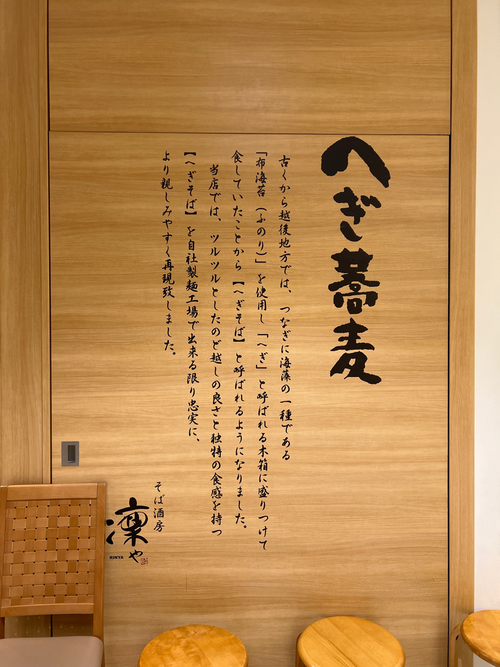 へぎ蕎麦
古くから越後地方では、つなぎに海藻の一種である
「布海苔（ふのり）」を使用し「へぎ」と呼ばれる木箱に盛りつけて
食していたことから【へぎそば】と呼ばれるようになりました。
当店では、ツルツルとしたのど越しの良さと独特の食感を持つ
【へぎそば】を自社製麺工場で出来る限り忠実に、
より親しみやすく再現致しました。
そば酒房
凛や
RINYA